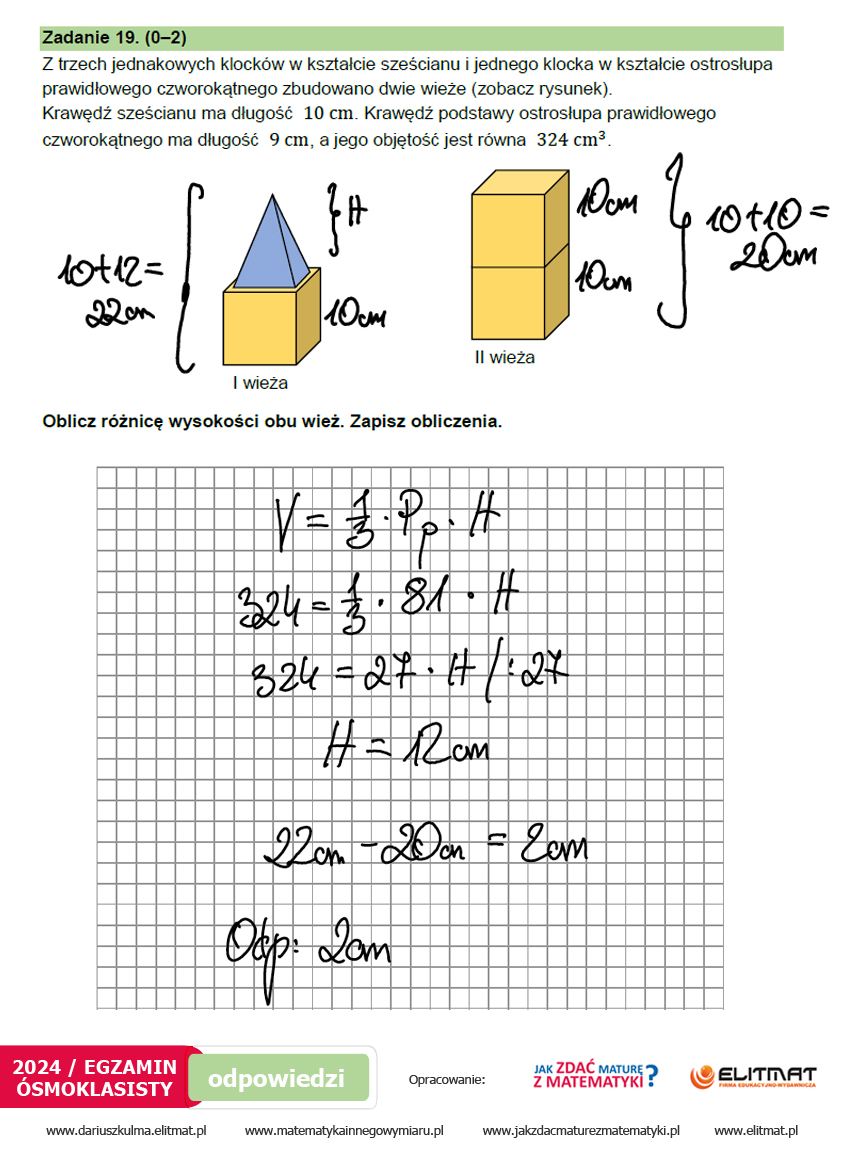 Zadanie 19. (0–2)
Z trzech jednakowych klocków w kształcie sześcianu i jednego klocka w kształcie ostrosłupa
prawidłowego czworokątnego zbudowano dwie wieże (zobacz rysunek).
Krawędź sześcianu ma długość 10 cm. Krawędź podstawy ostrosłupa prawidłowego
czworokątnego ma długość 9 cm, a jego objętość jest równa 324 cm³.
10+12=
22cm
H
10cm
I wieża
10cm
10cm
10+10=
20cm
II wieża
Oblicz różnicę wysokości obu wież. Zapisz obliczenia.
V = 1/3 · Pp · H
324 = 1/3 · 81 · H
324 = 27 · H /:27
H = 12cm
22cm - 20cm = 2cm
Odp: 2cm
2024 / EGZAMIN
ÓSMOKLASISTY
odpowiedzi
Opracowanie:
JAK ZDAĆ MATURĘ
Z MATEMATYKI?
ELITMAT
FIRMA EDUKACYJNO-WYDAWNICZA
www.dariuszkulma.elitmat.pl www.matematykainnegowymiaru.pl www.jakzdacmaturezmatematyki.pl www.elitmat.pl